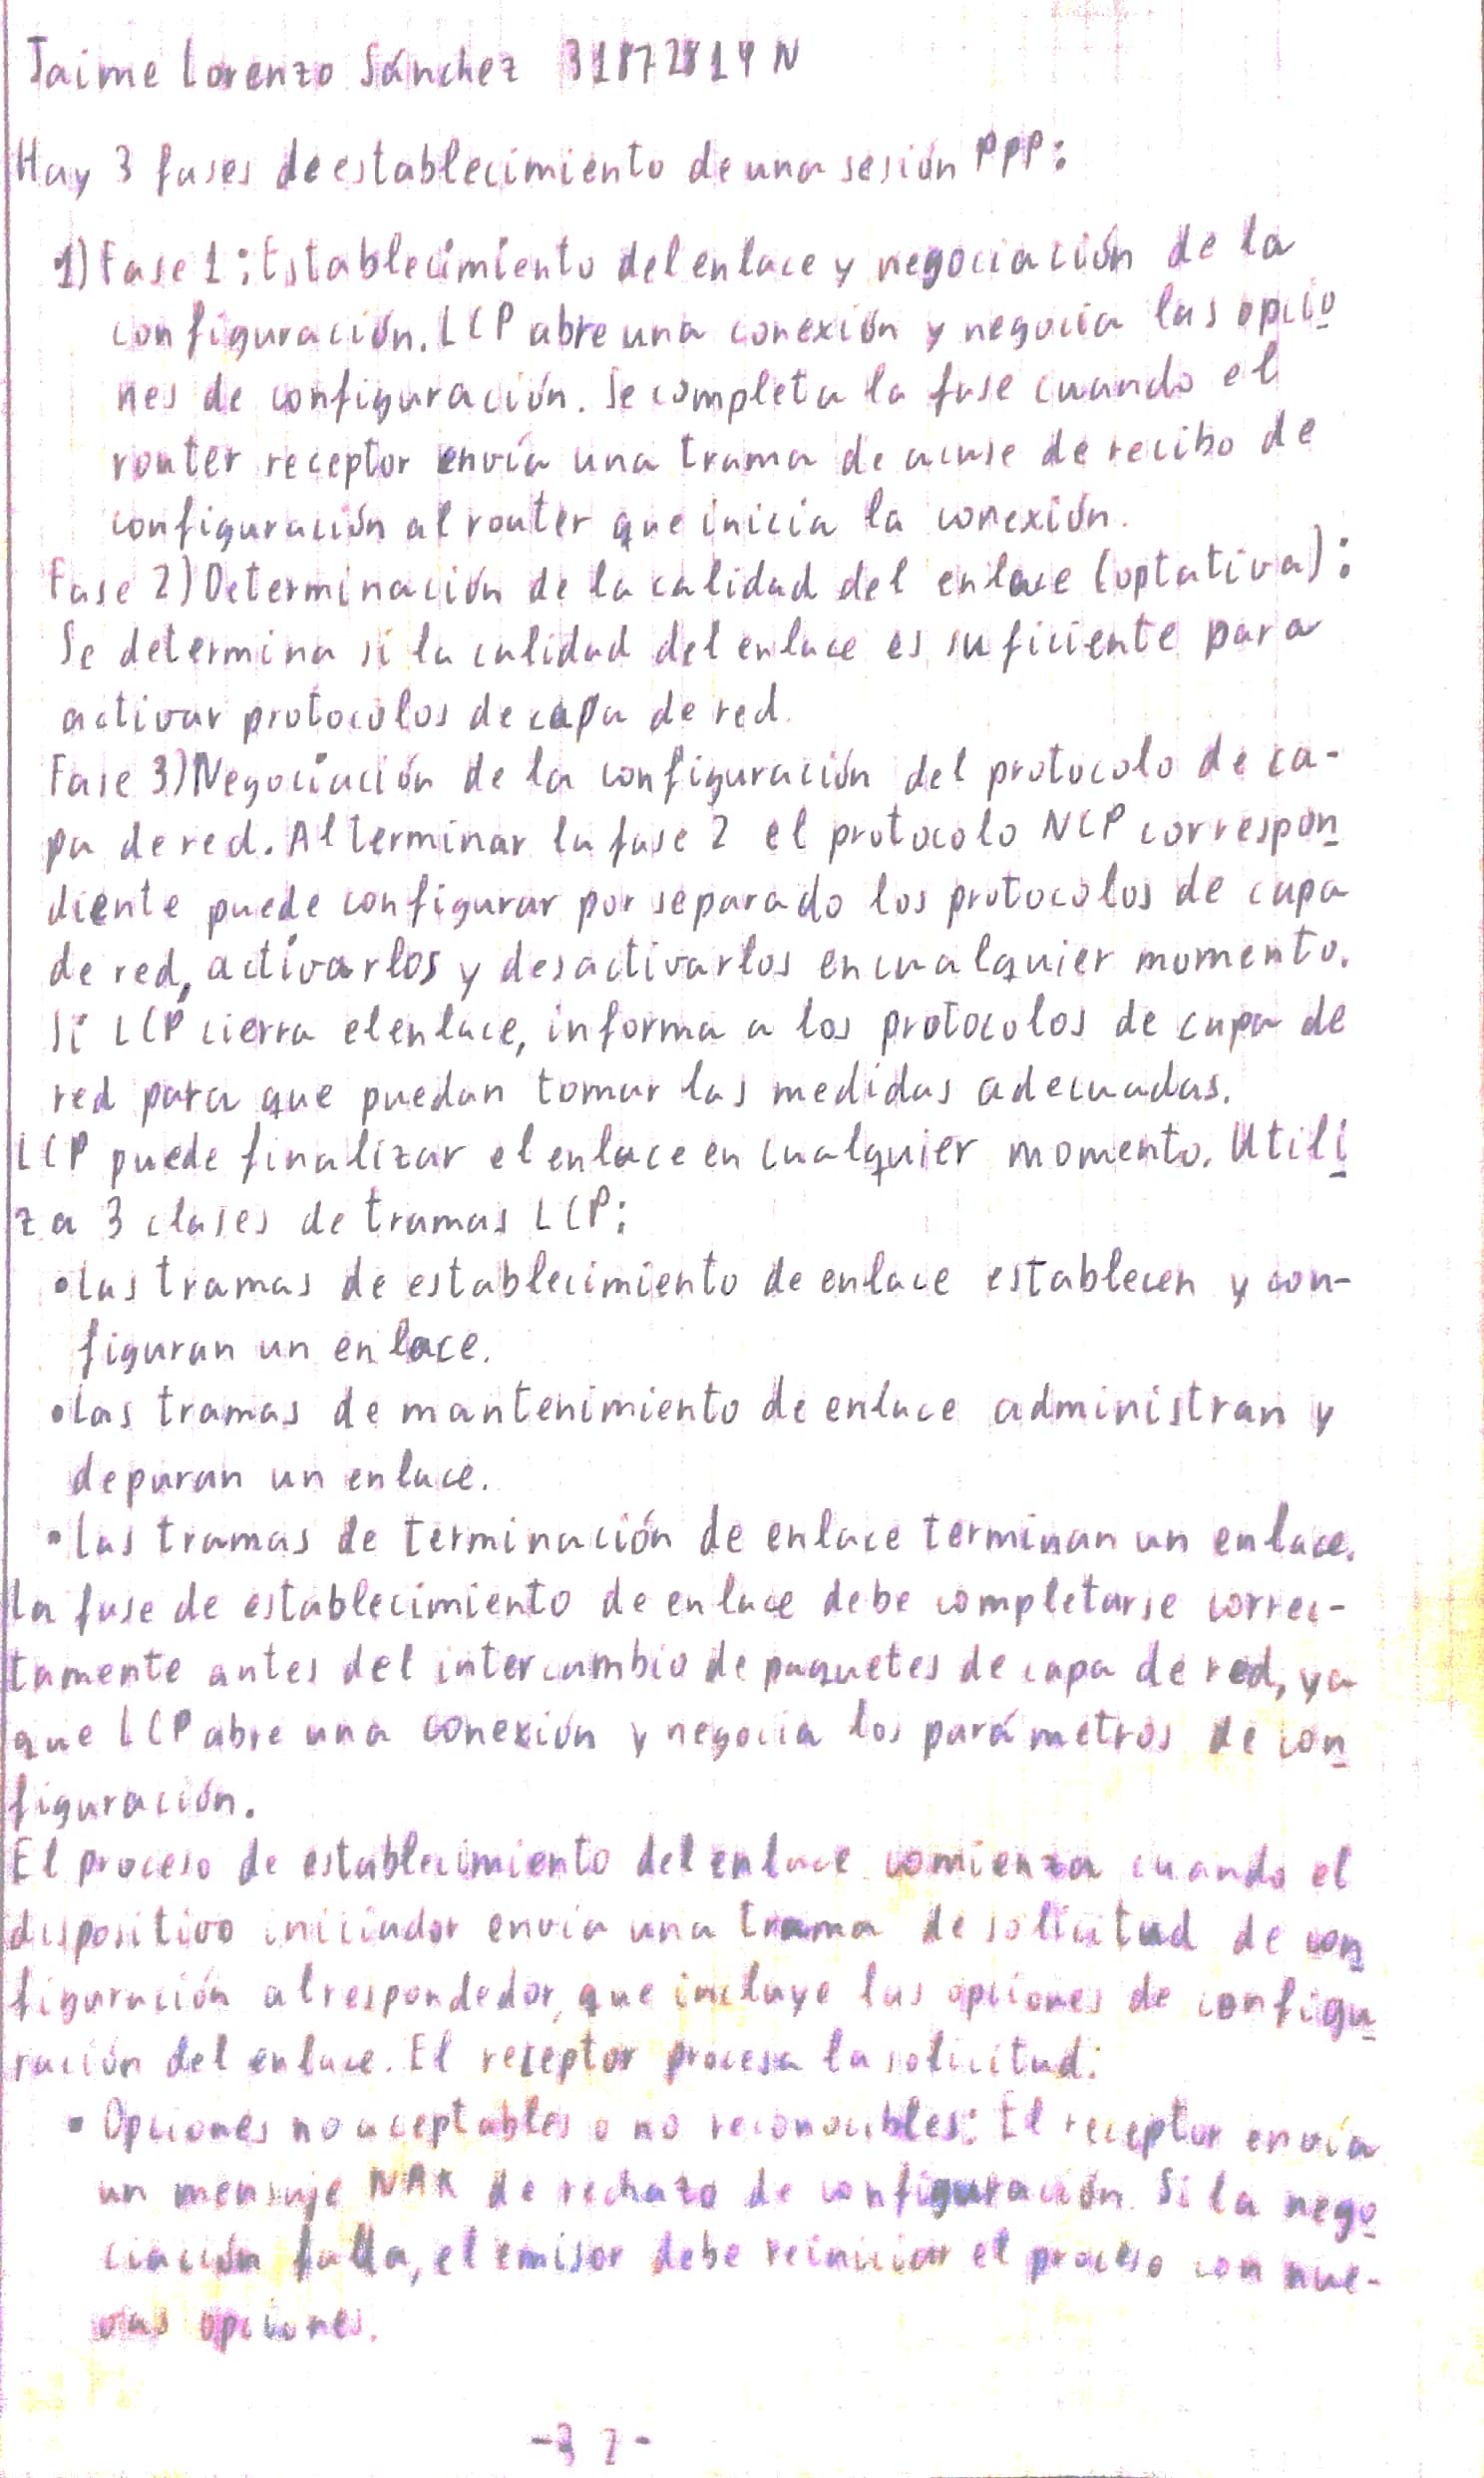 Jaime Lorenzo Sánchez 31872819N
Hay 3 fases de establecimiento de una sesión PPP:
1) Fase 1: Establecimiento del enlace y negociación de la
configuración. LCP abre una conexión y negocia las opcio
nes de configuración. Se completa la fase cuando el
router receptor envía una trama de acuse de recibo de
configuración al router que inicia la conexión.
Fase 2) Determinación de la calidad del enlace (optativa):
Se determina si la calidad del enlace es suficiente para
activar protocolos de capa de red.
Fase 3) Negociación de la configuración del protocolo de ca-
pa de red. Al terminar la fase 2 el protocolo NCP correspon
diente puede configurar por separado los protocolos de capa
de red, activarlos y desactivarlos en cualquier momento.
Si LCP cierra el enlace, informa a los protocolos de capa de
red para que puedan tomar las medidas adecuadas.
LCP puede finalizar el enlace en cualquier momento. Utili
za 3 clases de tramas LCP:
•Las tramas de establecimiento de enlace establecen y con-
figuran un enlace.
•Las tramas de mantenimiento de enlace administran y
depuran un enlace.
•Las tramas de terminación de enlace terminan un enlace.
La fase de establecimiento de enlace debe completarse correc-
tamente antes del intercambio de paquetes de capa de red, ya
que LCP abre una conexión y negocia los parámetros de con
figuración.
El proceso de establecimiento del enlace comienza cuando el
dispositivo iniciador envía una trama de solicitud de con
figuración al respondedor, que incluye las opciones de configu
ración del enlace. El receptor procesa la solicitud:
• Opciones no aceptables o no reconocibles: El receptor envía
un mensaje NAK de rechazo de configuración. Si la nego
ciación falla, el emisor debe reiniciar el proceso con nue-
vas opciones.